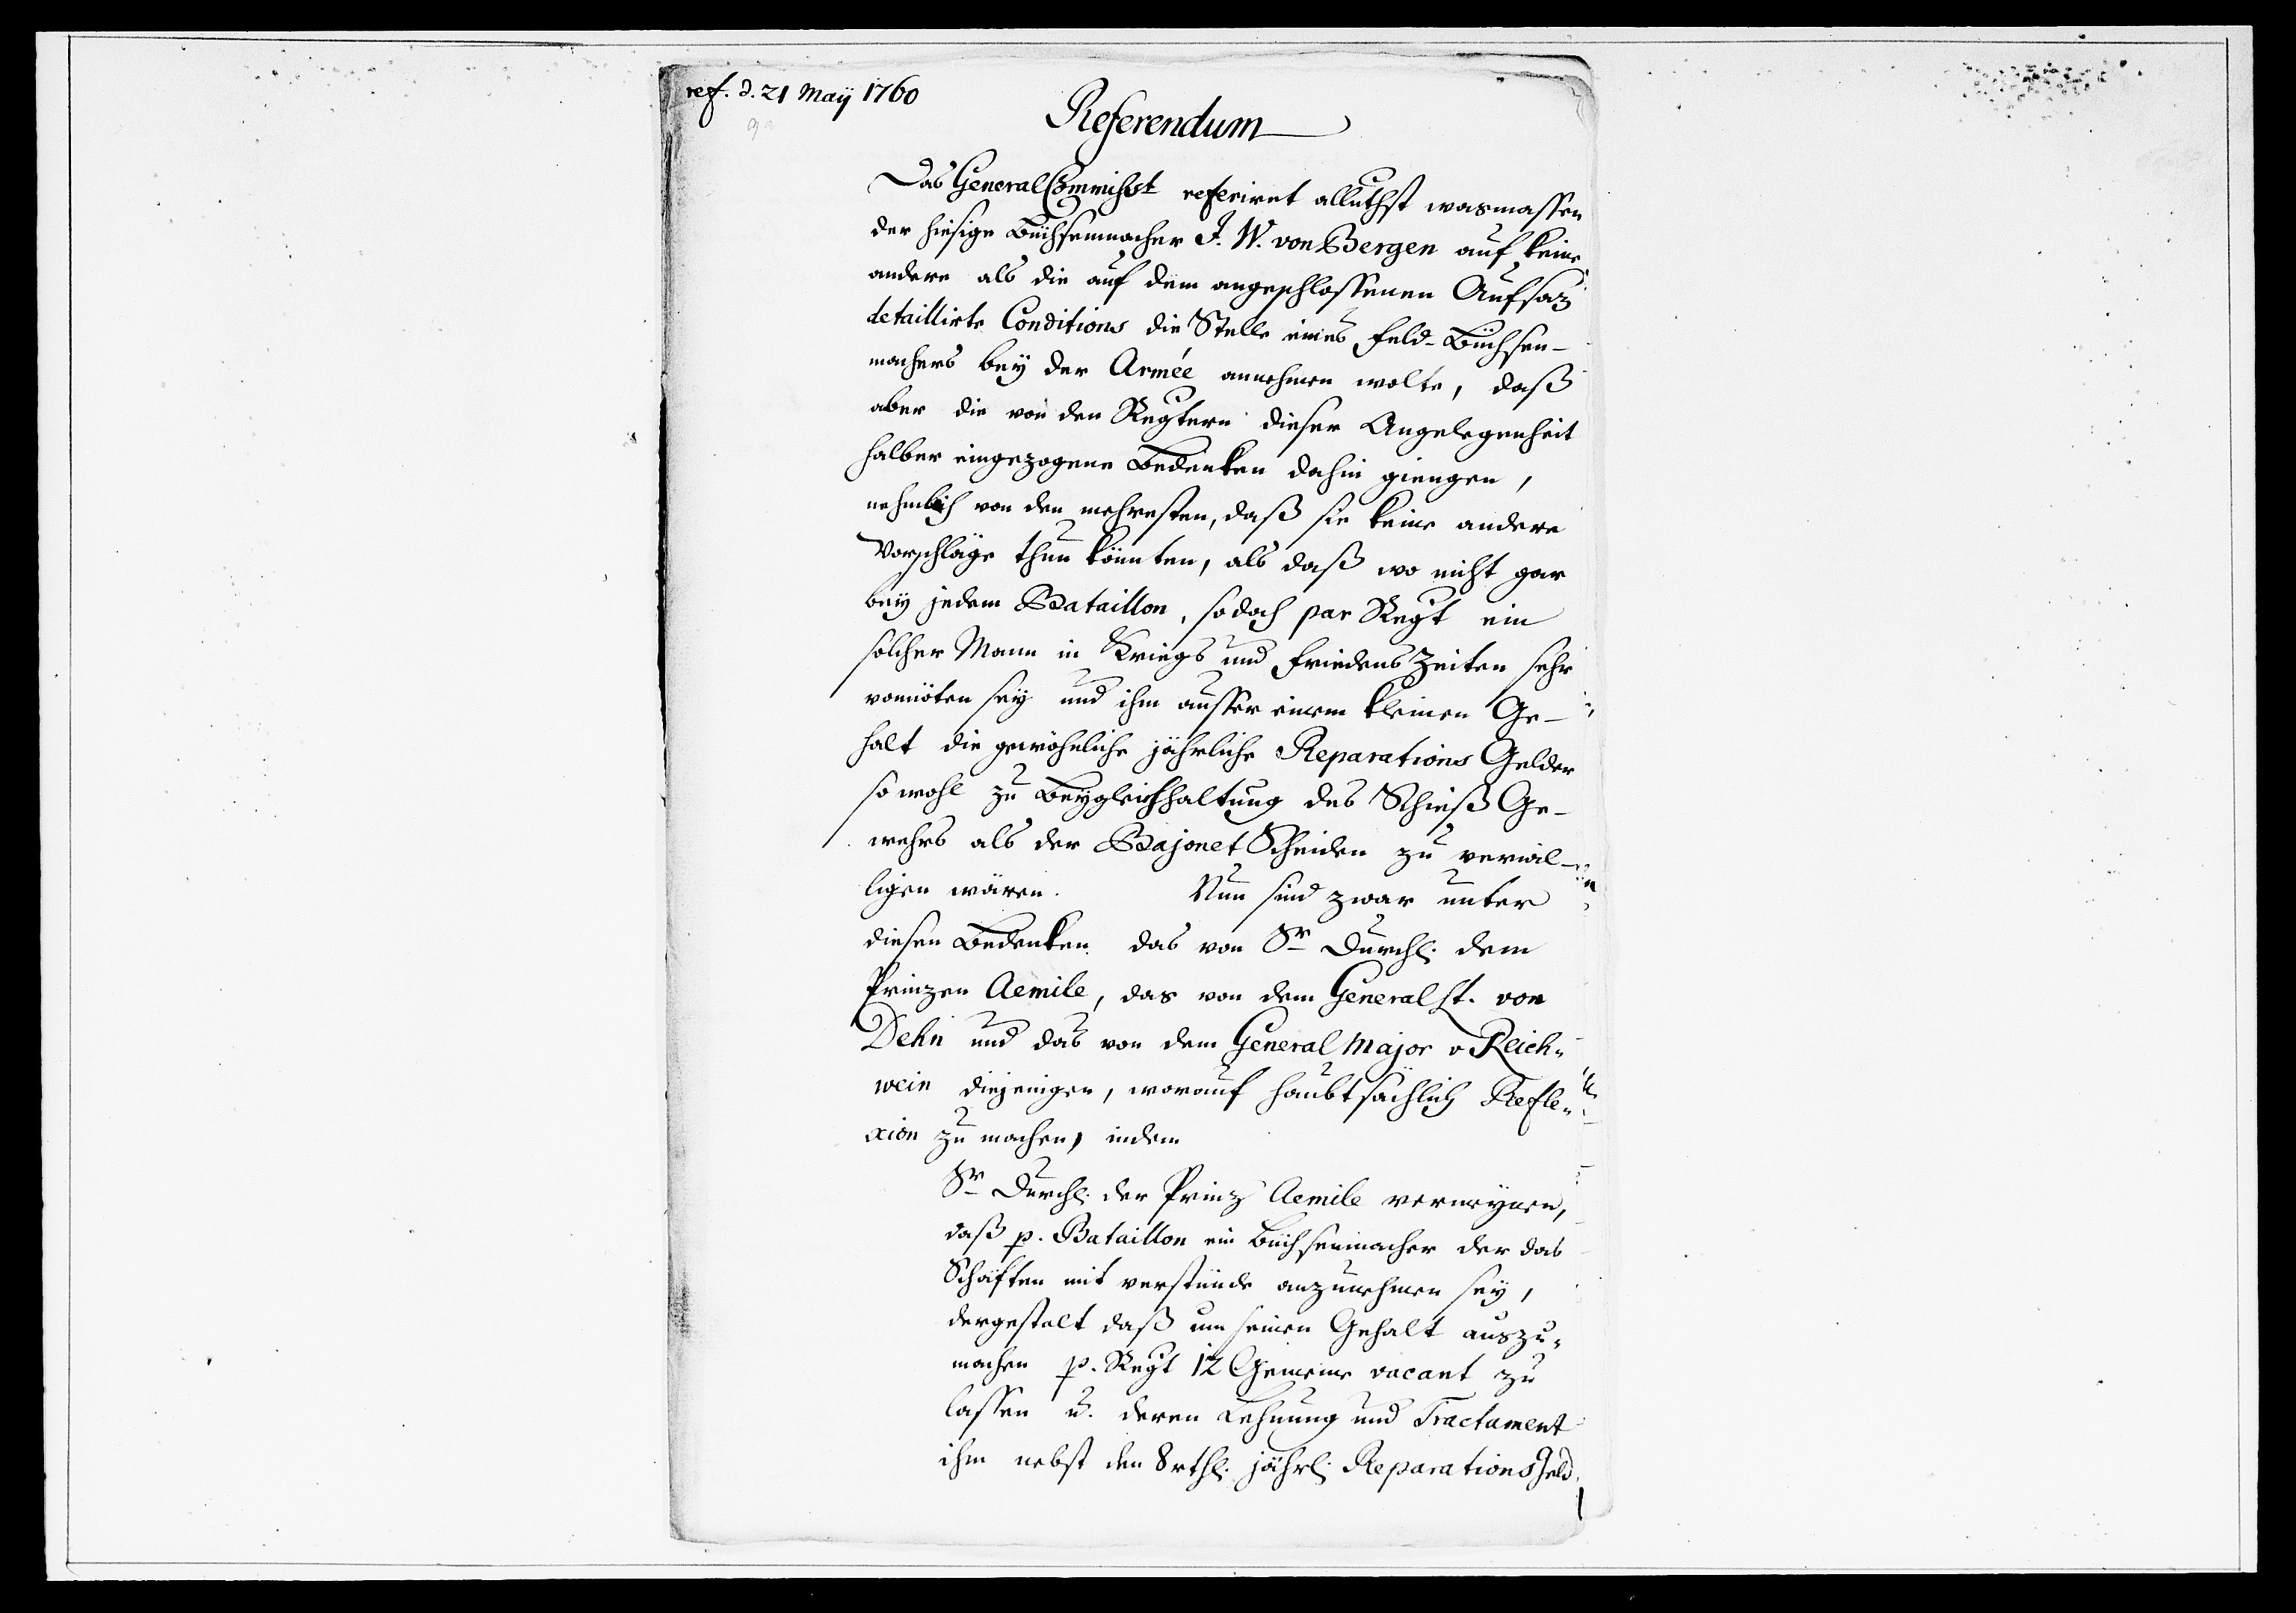 ref. d. 21 Maÿ 1760
Referendum
Das General Commisst referiret alluthst wasmassen
der hiesige Büchsenmacher J. W. von Bergen auf keine
andere als die auf dem angeschlossenen Aufsaz
detaillirte Conditions die Stelle eines Feld-Büchsen-
machers beÿ der Armée annehmen wolte, daß
aber die von den Regtern dieser Angelegenheit
halber eingezogene Bedenken dahin giengen,
nehmlich von den mehresten, daß sie keine andere
Vorschläge thun könnten, als daß wo nicht gar
beÿ jedem Bataillon, so doch par Regt ein
solcher Mann in Kriegs und Friedens Zeiten sehr
vonnöten seÿ und ihm ausser einem kleinen Ge-
halt die gewöhnliche jährliche Reparations Gelder
so wohl zu Beÿgleichhaltung des Schieß Ge-
wehrs als der Bajonet Scheiden zu verwil-
ligen wären. Nun sind zwar unter
diesen Bedenken das von Sr Durchl. dem
Prinzen Aemile, das von dem General Lt. von
Dehn und das von dem General Major v Reich-
wein diejenigen, worauf haubtsächlich Refle-
xion zu machen, indem
Sr Durchl. der Prinz Aemile vermeÿnen,
daß p. Bataillon ein Büchsenmacher der das
Schäften mit verstünde anzunehmen seÿ,
dergestalt daß um seinen Gehalt auszu-
machen p. Regt 12 Gemeine vacant zu
lassen u. deren Lehnung und Tractament
ihm nebst den 8 rthl. jährl. Reparations Geld